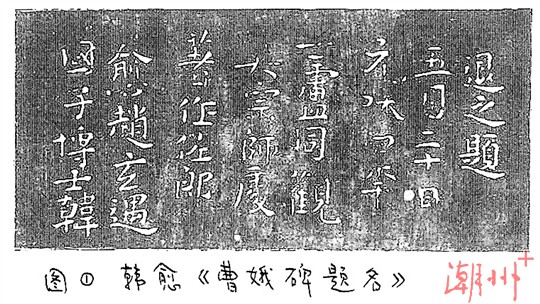 國子博士韓
愈趙玄遇
著作佐郎
宗師處
士盧同觀
元和四年
五月二十日
退之題
图① 韩愈《曹娥碑题名》
潮州+